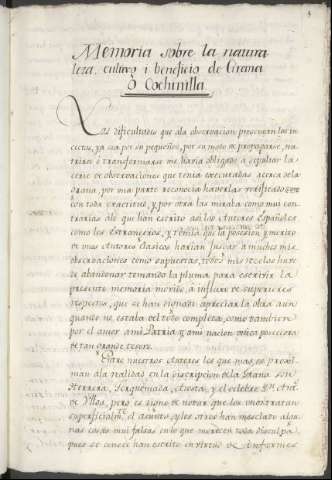 Memoria sobre la natura
leza, cultivo i beneficio de Grana
ò Cochinilla
Las dificultades que ala observacion presentan los in
sectos, ya sea por su pequeñes, por su modo de propagarse, nu
trirse ò transformarse me havia obligado a sepultar la
serie de observaciones que tenia executadas acerca dela
Grana, por una parte reconocia haverlas rectificado
con toda exactitud, y por otra las miraba como mui con
trarias alo que han escrito asi los Autores Españoles
como los Extrangeros, y temia que la posesion, y merito
de unos Autores clasicos harian juzgar a muchos mis
observaciones como supuestas,
de abandonar tomando la pluma para escrivir la
presente memoria movido, a influxo de superiores
respectos, que se han dignado apreciar la obra aun
quando no estaba del todo completa, como tambien
por el amor ami Patria, y ami nacion unica poseedora
de tan grande tesoro.
Entre nuestros Autores los que mas se proxi
man ala realidad en la descripcion dela Grana son
Herrera, Torquemada, Acosta, y el celebre Dn. Ant.
de Ulloa, pero es digno de notar que los unos tratan
superficialm.te el asunto, y los otros han mezclado algu
nas cosas mui falsas en que merecen toda disculpa,
pues se conoce han escrito en virtud de Informes